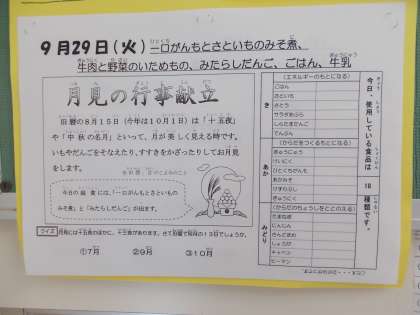 9月29日(火) 一口がんもとさといものみそ煮、
牛肉と野菜のいためもの、みたらしだんご、ごはん、牛乳
月見の行事献立
旧暦の8月15日(今年は10月1日)は「十五夜」
や「中秋の名月」といって、月が美しく見える時です。
いもやだんごをそなえたり、すすきをかざったりしてお月見
をします。
今日の給食には、「一口がんもとさといもの
みそ煮」と「みたらしだんご」が出ます。
クイズ
①7月 ②9月 ③10月
今日、使用している食品は
18
種類です。
き
(エネルギーのもとになる)
ごはん
さといも
さとう
サラダあぶら
しらたまだんご
でんぷん
あか
(からだをつくるもとになる)
ぎゅうにゅう
ぎゅうにく
みどり
(からだのちょうしをととのえる)
たまねぎ
にんじん
しょうが
キャベツ
ピーマン